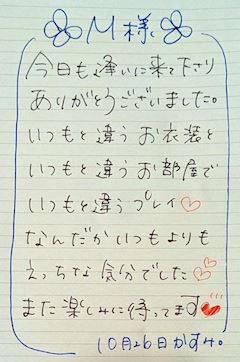 M様
今日も逢いに来て下さり
ありがとうございました。
いつもと違うお衣装と
いつもと違うお部屋で
いつもと違うプレイ♡
なんだかいつもよりも
えっちな気分でした♡
また楽しみに待ってます♥
10月26日かすみ。